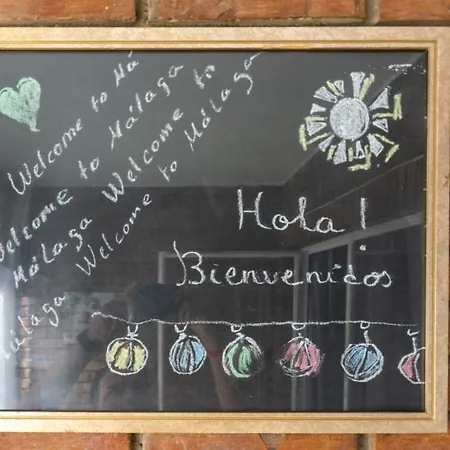 Welcome to Má
Welcome to Málaga
Málaga Welcome to
Málaga Welcome to Málaga
Hola!
Bienvenidos